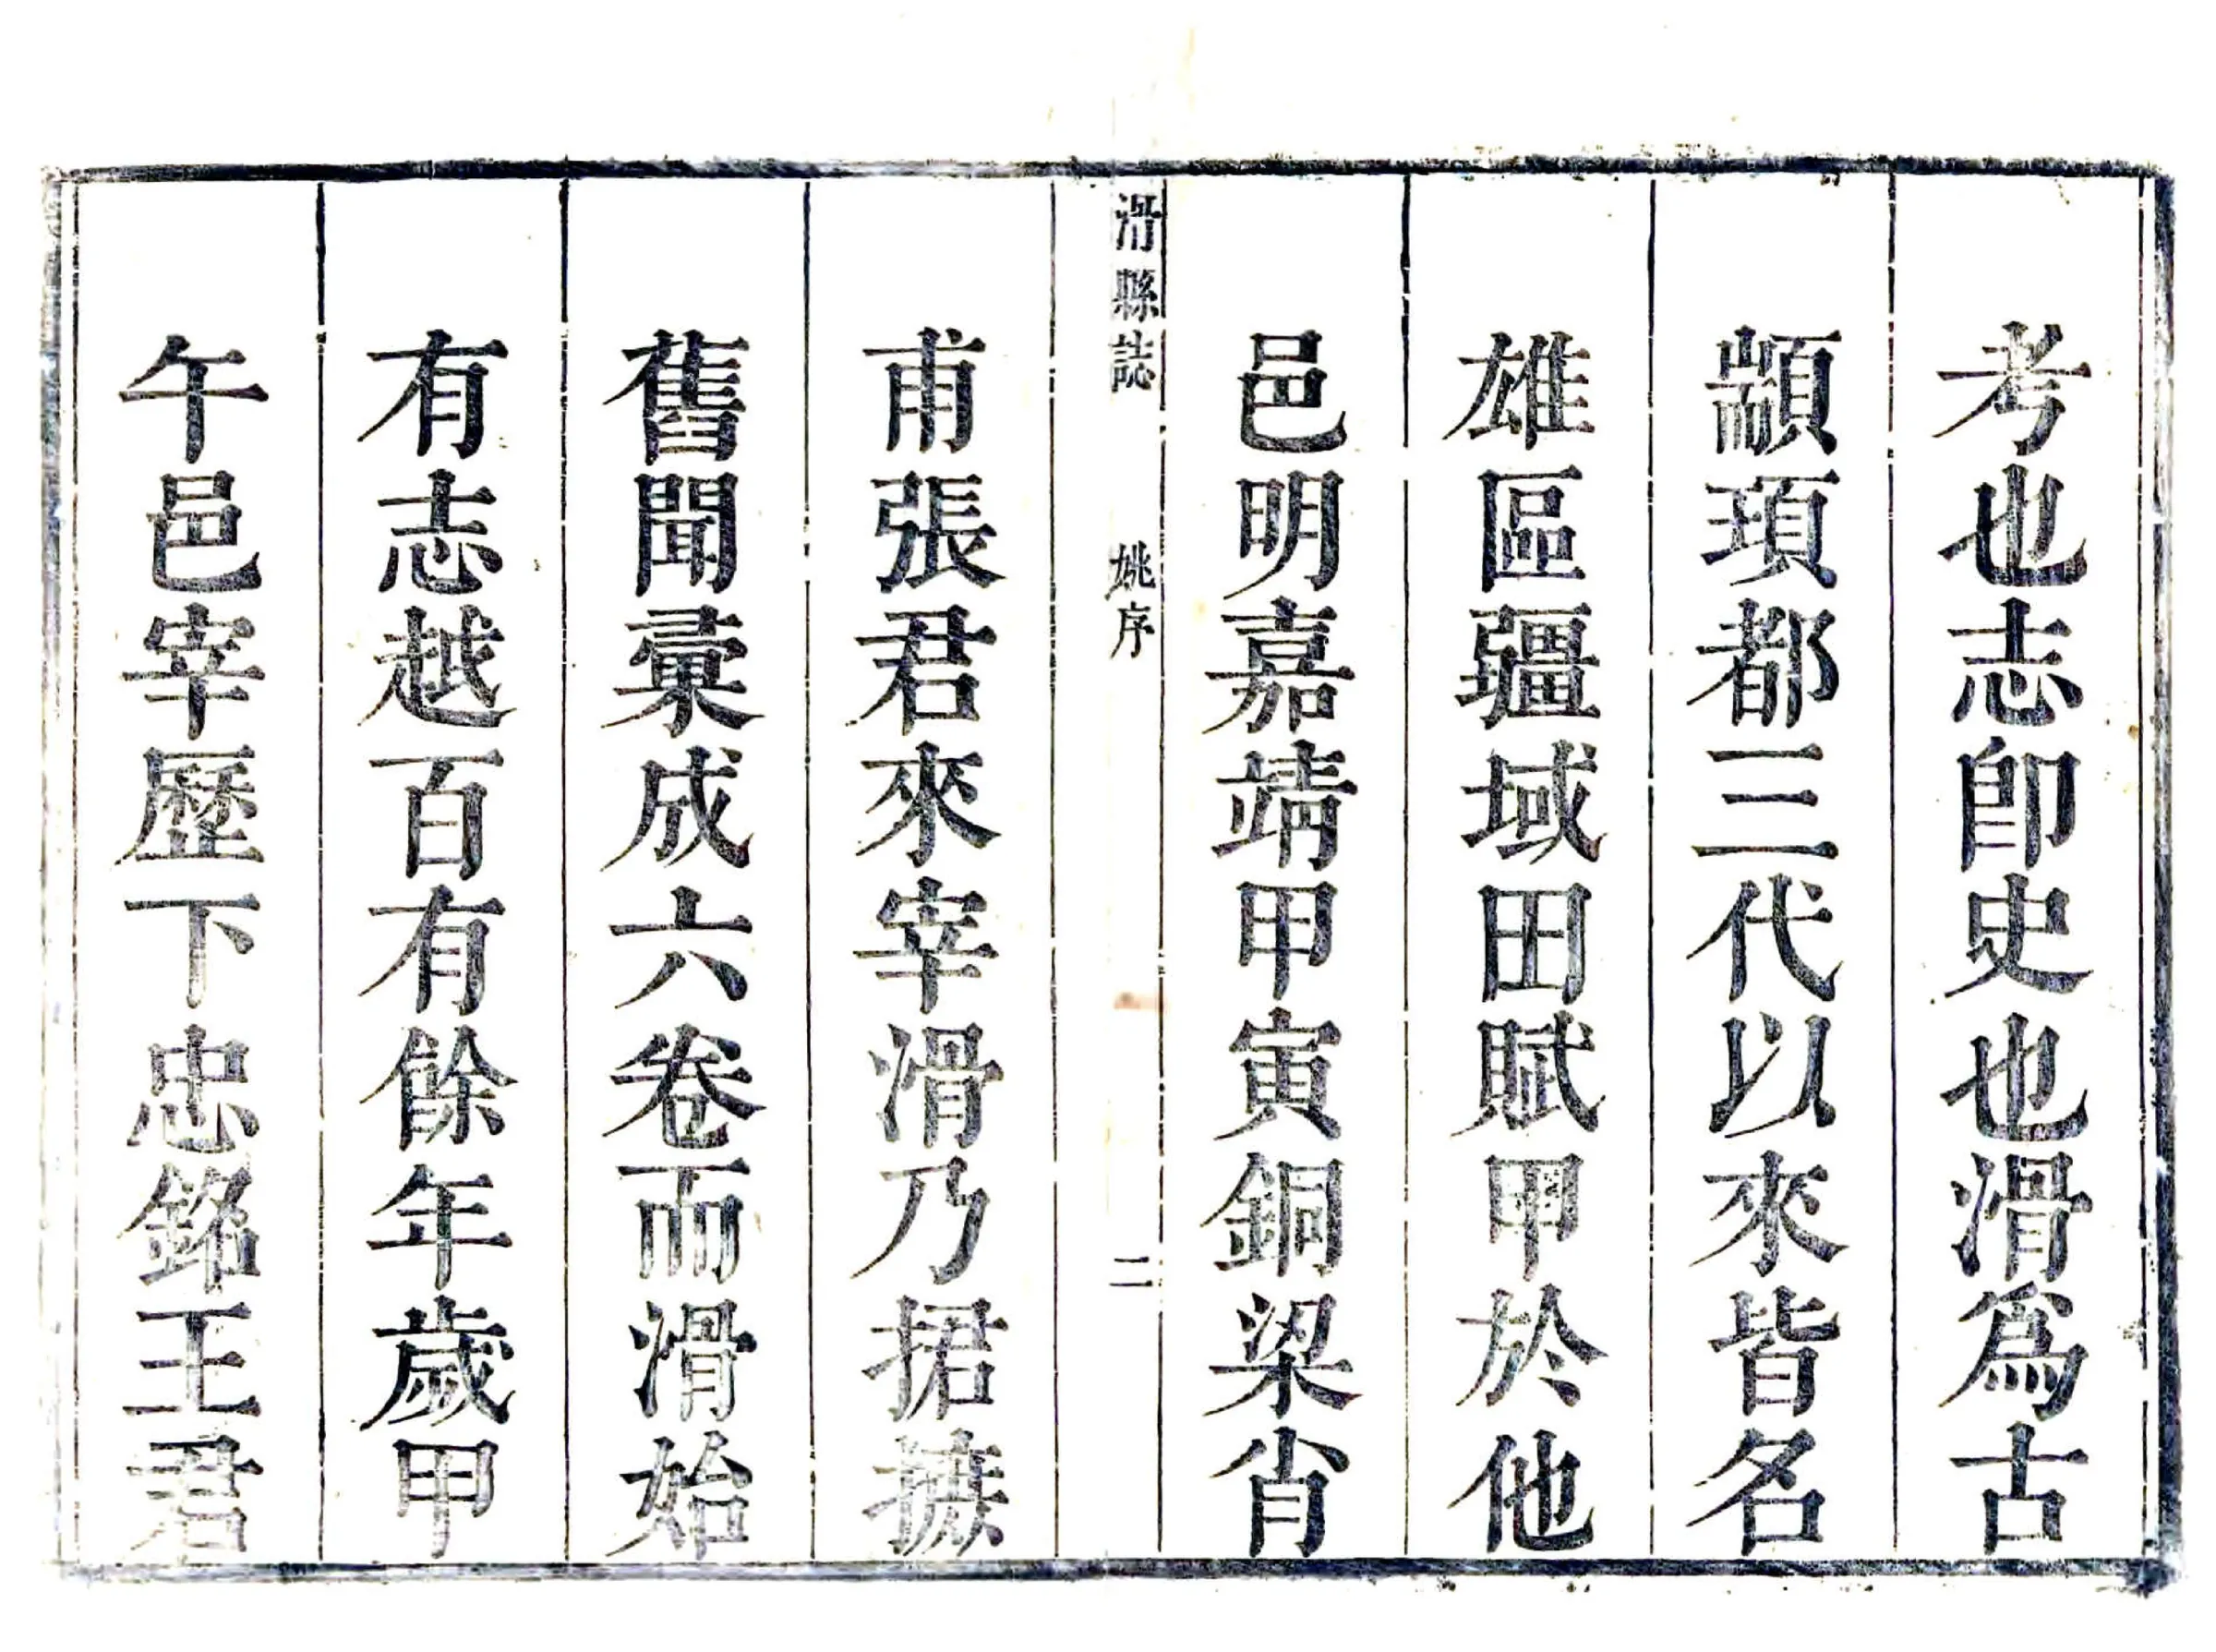 考也志即史也滑爲古
顓頊都三代以來皆名
雄區疆域田賦甲於他
邑明嘉靖甲寅銅梁肖
滑縣誌 姚序 二
甫張君來宰滑乃捃摭
舊聞彙成六卷而滑始
有志越百有餘年歲甲
午邑宰歷下忠銘王君